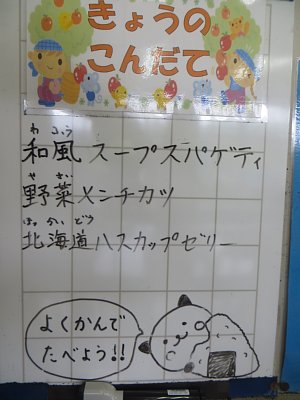 きょうの
こんだて
わ ふう
和風スープスパゲティ
や さい
野菜メンチカツ
ほっ かい どう
北海道ハスカップゼリー
よくかんで
たべよう!!